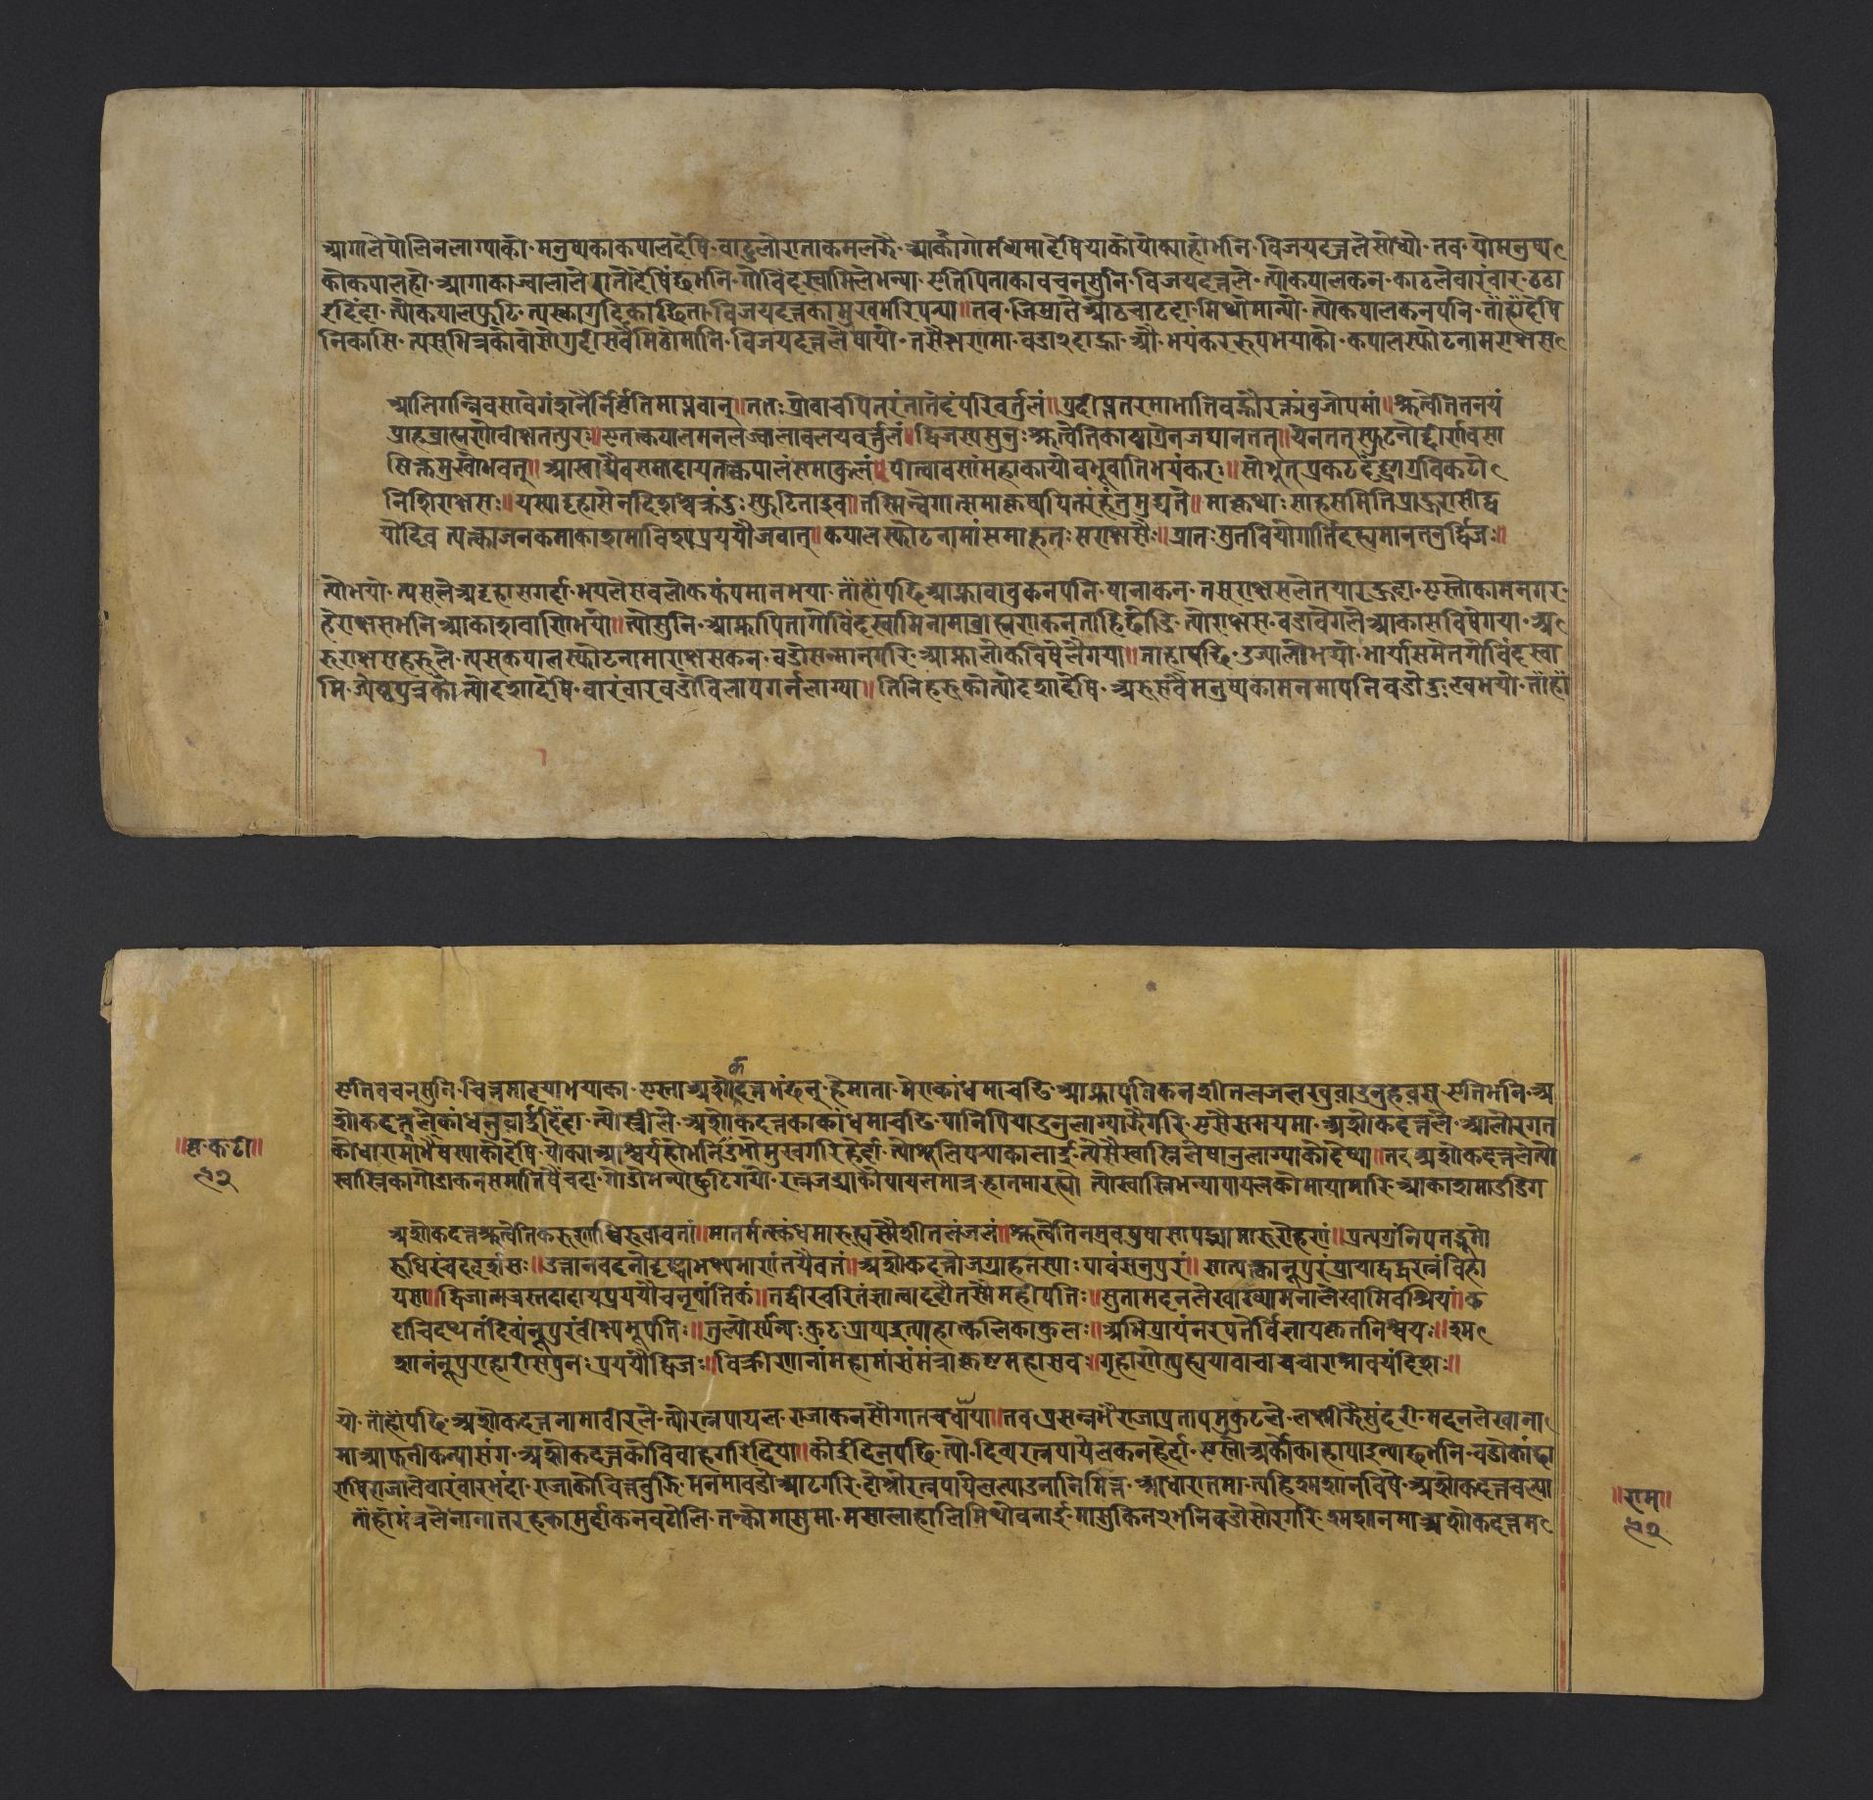 आगोले पोलिन लाग्याको मनुष्यका कपाल देषि वाटुलो रातो कमल झै आगोका मध्यमा देषियाको यो क्या हो भनि विजयदत्तले सोध्यो तव यो मनुष्य
को कपाल हो आगाका ज्वालाले रातो देषिंछ भनि गोविंदस्वामिले भन्या एति पिताका वचन सुनि विजयदत्तले त्यो कपालकन काठले वारंवार ठठा
इदिंदा त्यो कपाल फुटि त्यस्का गुदिका छिता विजयदत्तका मुखमरि पन्या॥ तव जिव्राले ओठ चाटदा मिथो मान्यो त्यो कपालकन पनि ताँहाँ देषि
निकासि त्यस भित्रको वोसो गुदी सवै मिठो मानि विजयदत्तले षायो तसै क्षणमा वडा २ दाह्रा औ भयंकर रूप भयाको कपालस्फोट नाम राक्षस
आलिंगन्निव सावेगं शनैर्निर्वृतिमाप्तवान्॥ ततः प्रोवाच पितरं तातेदं परिवर्तुलं॥ प्रदीप्ततरमाभाति वह्नौ रक्तांवुजोपमं॥ श्रुत्वेति तनयं
प्राह व्राह्मणो वीक्ष्य तत्पुरः॥ एतत्कपालमनलज्वालावलयवर्तुलं॥ द्विजस्य सुनुः श्रुत्वेति काष्ठाग्रेन जघान तत्॥ येन तत्स्फुटनोद्गीर्णवसा
सिक्तमुखोभवत्॥ आस्वाद्यैव समादाय तत्कपालं समाकुलं॥ पीत्वा वसां महाकायो वभूवातिभयंकरः॥ सोभूत् प्रकटदंष्ट्राग्रविकटो
निशि राक्षसः॥ यस्याट्टहासेन दिशश्चक्रंदुः स्फुटिता इव॥ तस्मिन्वेगात्समाकृष्य पितरं हंतुमुद्यते॥ मा कृथाः साहसमिति प्रादुरासीद्व
यो दिव त्यक्त्वा जनकमाकाशमाविश्य प्रययौ जवात्॥ कपालस्फोटनामां समाहूतः स राक्षसैः॥ प्रातः सुतवियोगार्तिदह्यमानतनुर्द्विजः॥
त्यो भयो त्यसले अट्टहास गर्दा भयले सवलोक कंपमान भया ताँहाँ पछि आफ्ना वावुकन पनि षानाकन तस राक्षसले तयार हुदा एस्तो काम नगर
हे राक्षस भनि आकाशवाणि भयो॥ त्यो सुनि आफ्ना पिता गोविंदस्वामि नामा व्राह्मणकन ताहि छोडि त्यो राक्षस वडा वेगले आकास विषे गया अ
रु राक्षसहरूले त्यस कपालस्फोट नामा राक्षसकन वडो सन्मान गरि आफ्ना लोक विषे लैगया॥ ताहापछि उज्यालो भयो भार्या समेत गोविंदस्वा
मि ज्येष्ठ पुत्रको त्यो दशा देषि वारंवार वडो विलाप गर्न लाग्या॥ तिनिहरूको त्यो दशा देषि अरू सवै मनुष्यका मनमा पनि वडो दुःख भयो ताँहाँ
एति वचन सुनि चित्तमा दया भयाका एस्ता अशोकदत्त भंछन् हे माता मेरा कांधमा चढि आफ्ना पतिकन शीतल जल खुवाउनुहवस् एति भनि अ
शोकदत्तले कांध नुघाई दिंदा त्यो स्त्रीले अशोकदत्तका कांधमा चढि पानि पियाउनु लाग्या झै गरि एसै समयमा अशोकदत्तले आलो रगत
को धारा मांथि षस्याको देषि यो क्या आश्चर्य हो भनि उभो मुख गरि हेर्दा त्यो शुलि पन्याका लाई त्येसै स्वास्निले षानु लाग्याको देष्या॥ तव अशोकदत्तले त्यो
स्वास्निका गोडाकन समाति षैंचदा गोडो मन्यो छुटि गयो रत्न जड्याको पायल मात्र हातमा रह्यो त्यो स्वास्नि भन्या पायलको माया मारि आकाशमा उडि ग
अशोकदत्त श्रुत्वेति करुणाश्चिरुवाव तां॥ मातर्मत्स्कंधमारुह्यास्मै शीतलं जलं॥ श्रुत्वेति नम्रवपुषा सा पद्भ्यामारुरोह तां॥ प्रत्यग्रं निपतद्भूमौ
रुधिरं च ददर्श सः॥ उत्तानवदनो दृष्ट्वा भक्ष्यमाणं तयैव तं॥ अशोकदत्तो जग्राह तस्याः पादं सनुपुरं॥ सा त्यक्त्वा नूपुरं प्रायाद्धद्धरत्नं विहा
यसा॥ द्विजात्मजस्तदादाय प्रययौ च नृपांतिकं॥ तद्वीरचरितं ज्ञात्वा ददौ तस्मै महीपतिः॥ सुतां मदनलेखाख्यां मनोलेखामिव श्रियं॥ क
दाचिदथ तं दिव्यं नूपुरं वीक्ष्य भूपतिः॥ तुल्योर्स्यान्यः कुटः प्राप्य इत्याहोत्कलिकाकुलः॥ अभिप्रायं नरपतेर्विज्ञाय कृतनिश्चयः॥ श्म
शानं नूपुराहारी स पुनः प्रययौ द्विजः॥ विक्रीणानां महामांसं मंत्राकृष्टमहासवः॥ गृहाणेत्युह्यया वाचा चचाराश्रावयं दिशः॥
यो ताँहाँ पछि अशोकदत्त नामा वीरले त्यो रत्न पायल राजाकन सौगात चर्‍हाया॥ तव प्रसन्न भै राजा प्रताप मुकुटले लक्ष्मी झै सुंदरी मदनलेखा ना
मा आफनी कन्या संग अशोकदत्तको विवाह गरि दिया॥ कोई दिन पछि त्यो दिव्य रत्न पायेलकन हेर्दा एस्तो अर्को काहा पाइन्याछ भनि वडो कांछा
राषि राजाले वारंवार भंदा राजाको चित्त वुझि मनमा वडो आट गरि दोश्रो रत्न पायेल ल्याउना निमित्त आधा रातमा त्यहि श्मशान विषे अशोकदत्त चल्या
ताँहाँ मंत्रले नाना तरहका मुर्दाकन वटोलि तन्को मासुमा मसाला हालि मिथो वनाई मासु किन २ भनि वडो सोर गरि श्मशानमा अशोकदत्त म
॥वृ·क·टी॥
९२
॥राम॥
९२